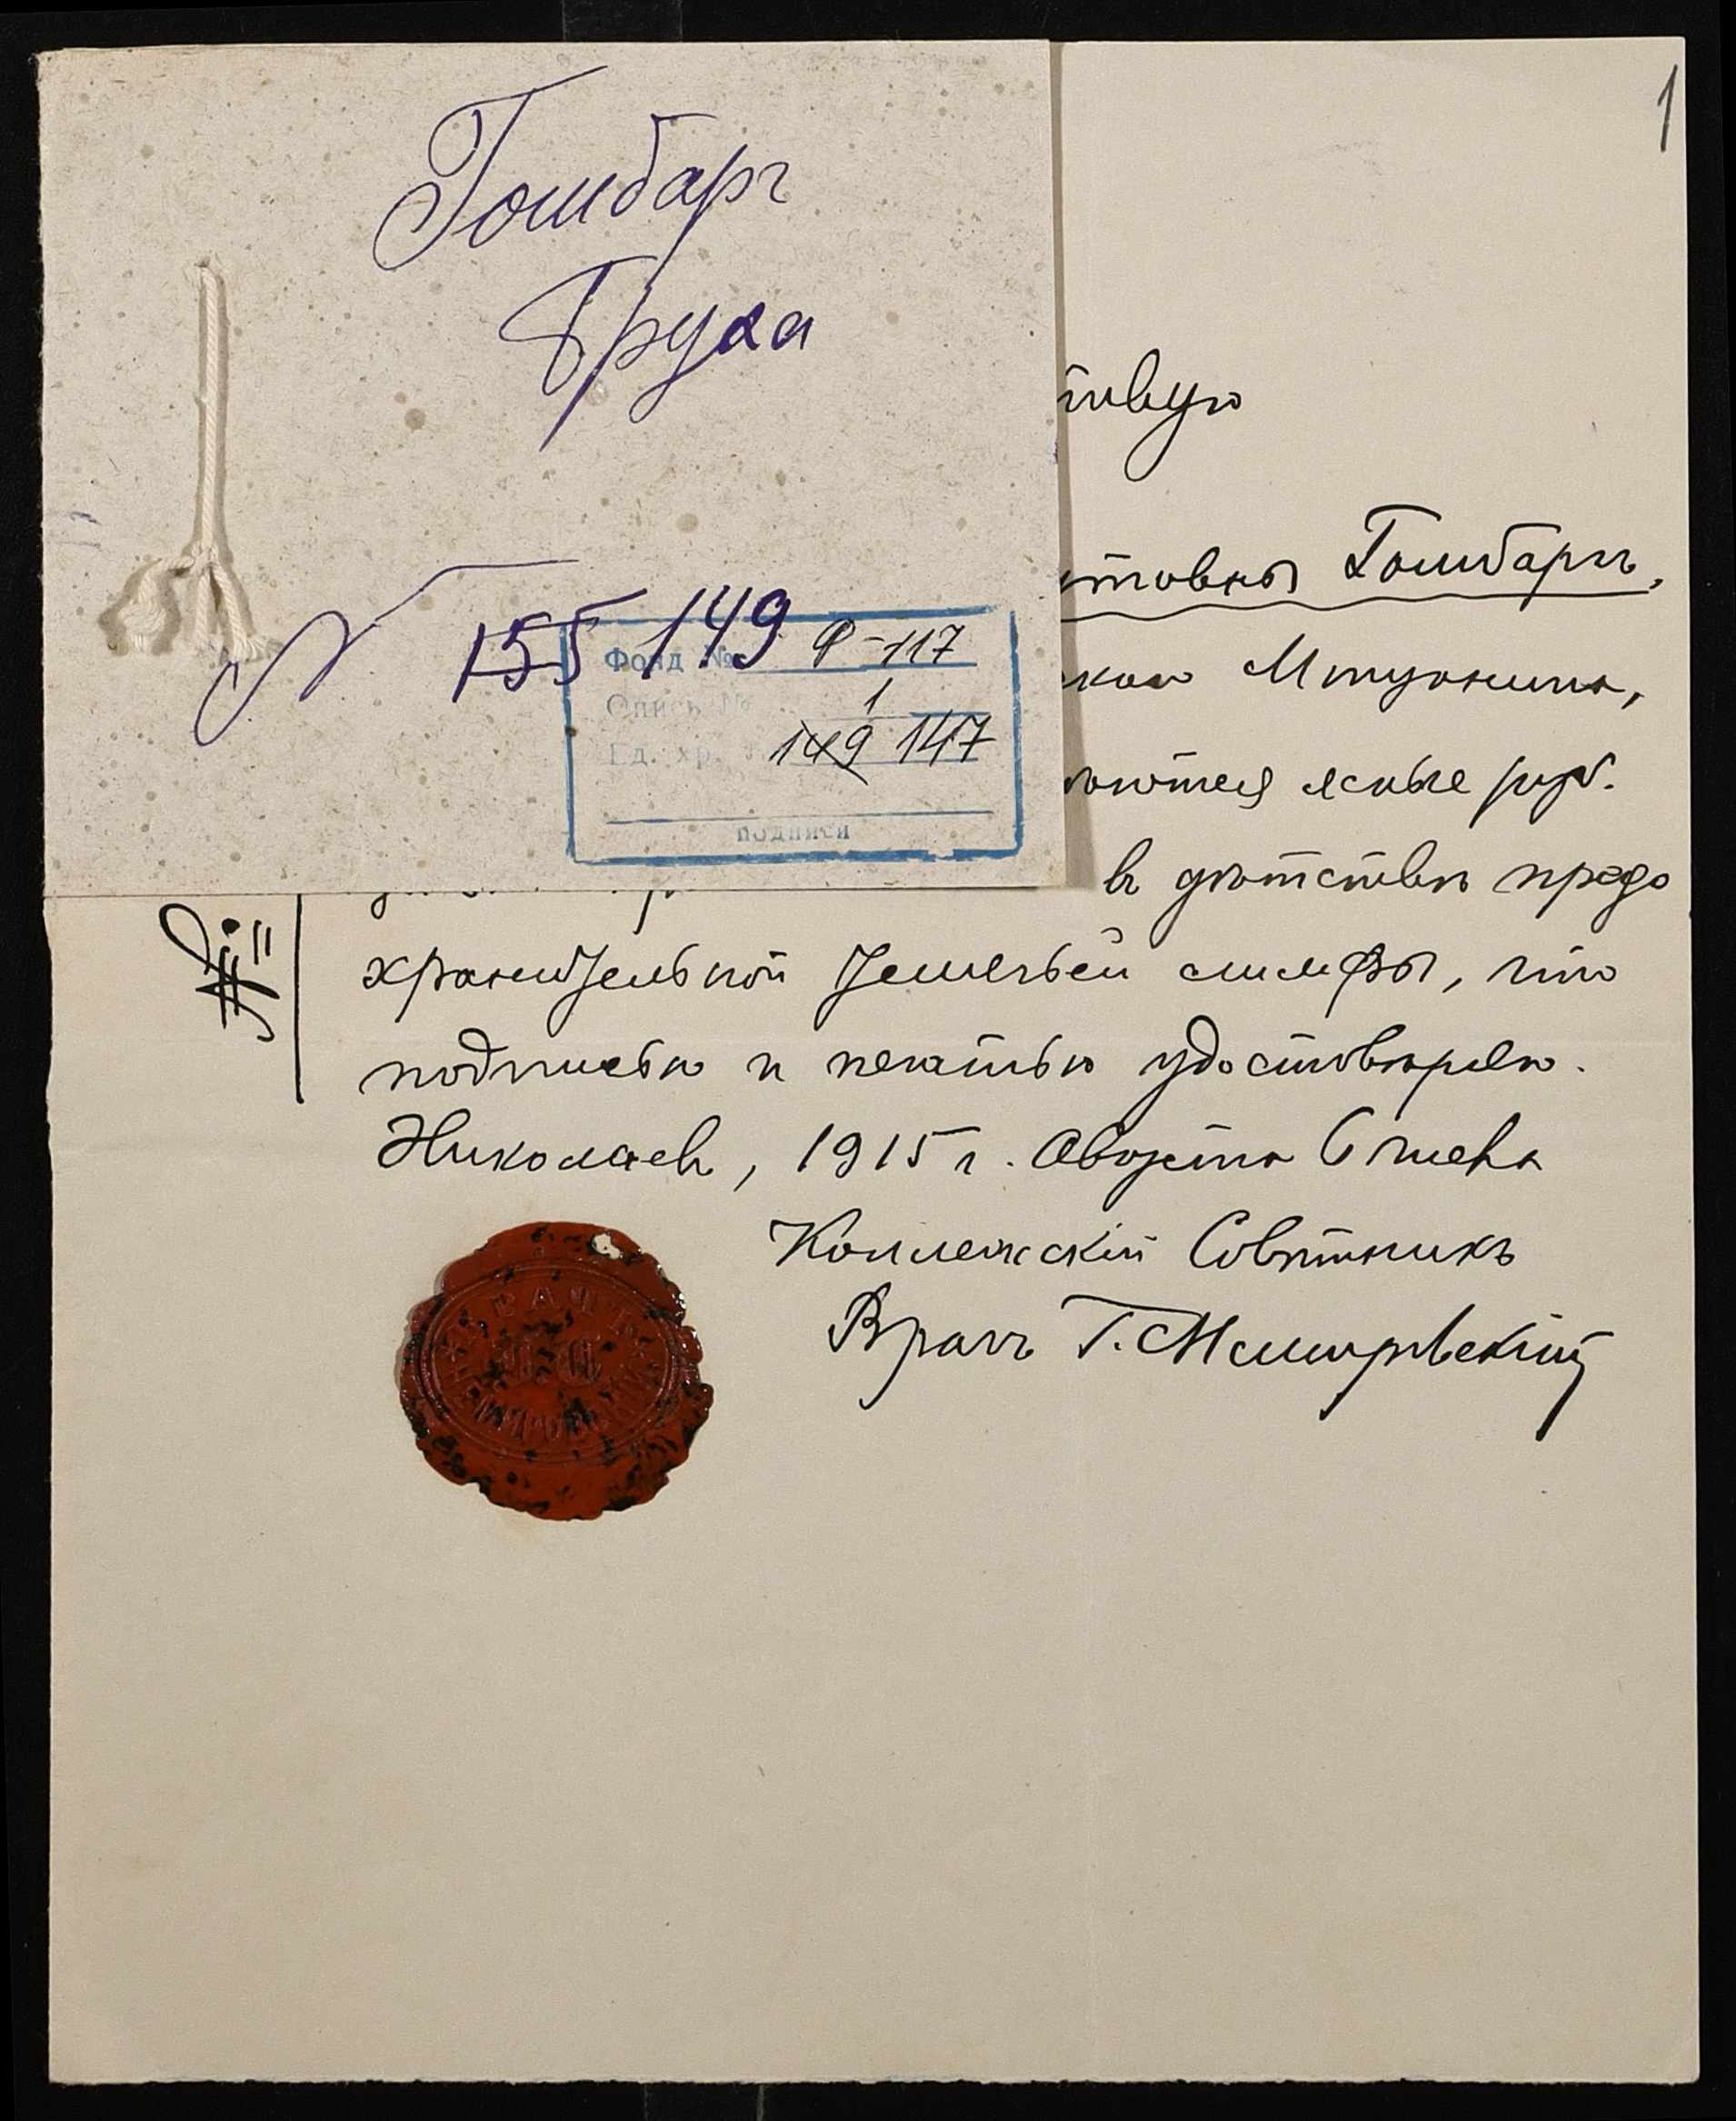 1
Гомбарг
Груха
N 155 149
Фонд № Ф-117
Опись № 1
Ед. хр. 149 147
подписи
твую
товны Гомбаргъ,
ются ясные руб.
в дѣтствѣ предо
хранительной телячьей лимфы, что
подписью и печатью удостовѣряю.
Николаевъ, 1915 г. Августа 6 дня
Коллежскій Совѣтникъ
Врачъ Г.